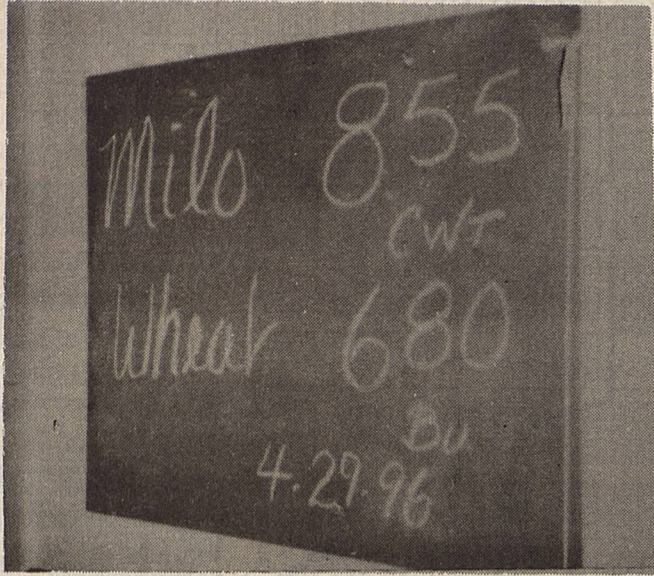 Milo 855
CWT
Wheat 680
Bu
4.29.96